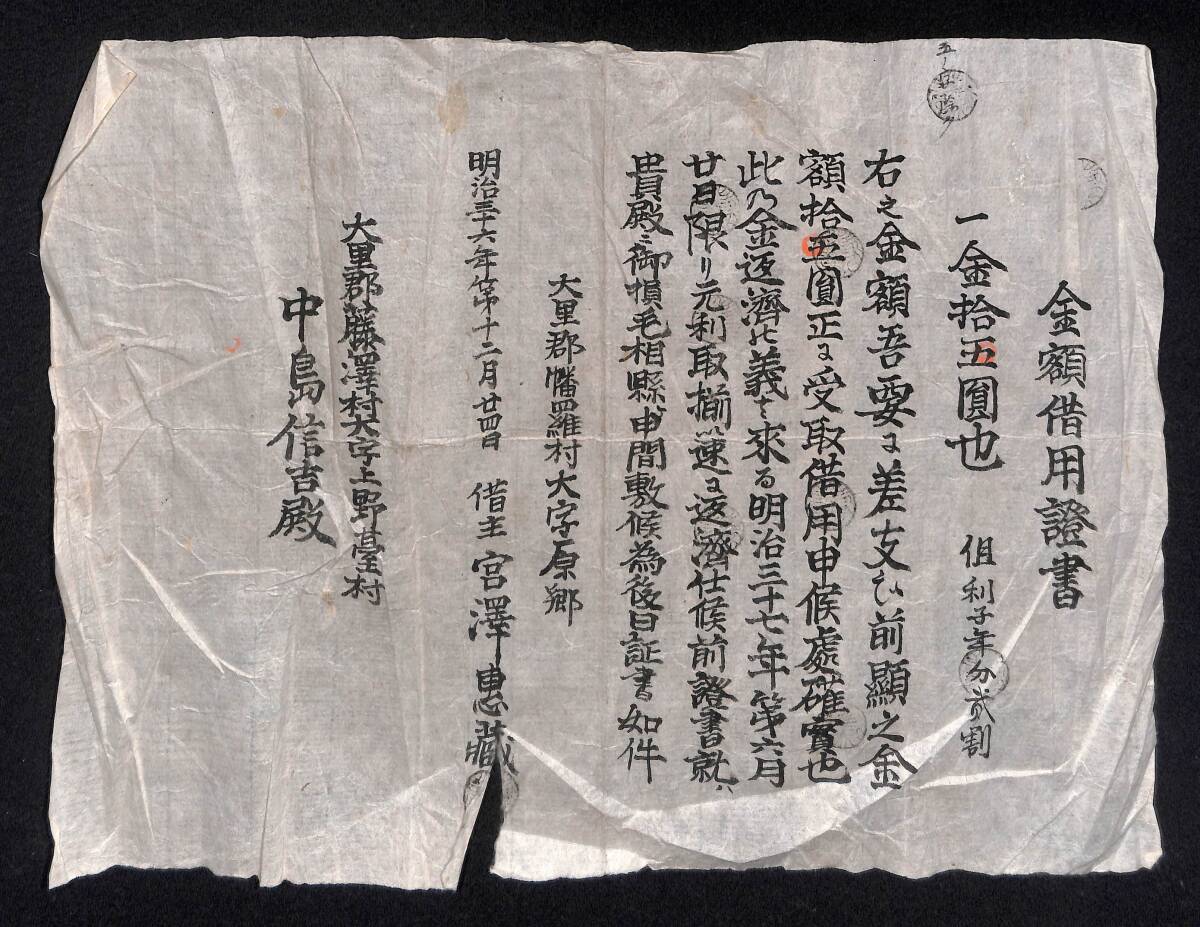 金額借用證書
一金拾五圓也 但利子年分貳割
右之金額吾要ニ差支ひ前顯之金
額拾五圓正ニ受取借用申候處確實也
此乃金返濟之義ハ來る明治三十七年第六月
廿日限リ元利取揃速ニ返濟仕候前證書就ハ
貴殿ニ御損毛相縣申間敷候為後日証書如件
大里郡幡羅村大字原郷
明治三十六年第十二月廿四日 借主 宮澤惠藏
大里郡藤澤村大字上野臺村
中島信吉殿